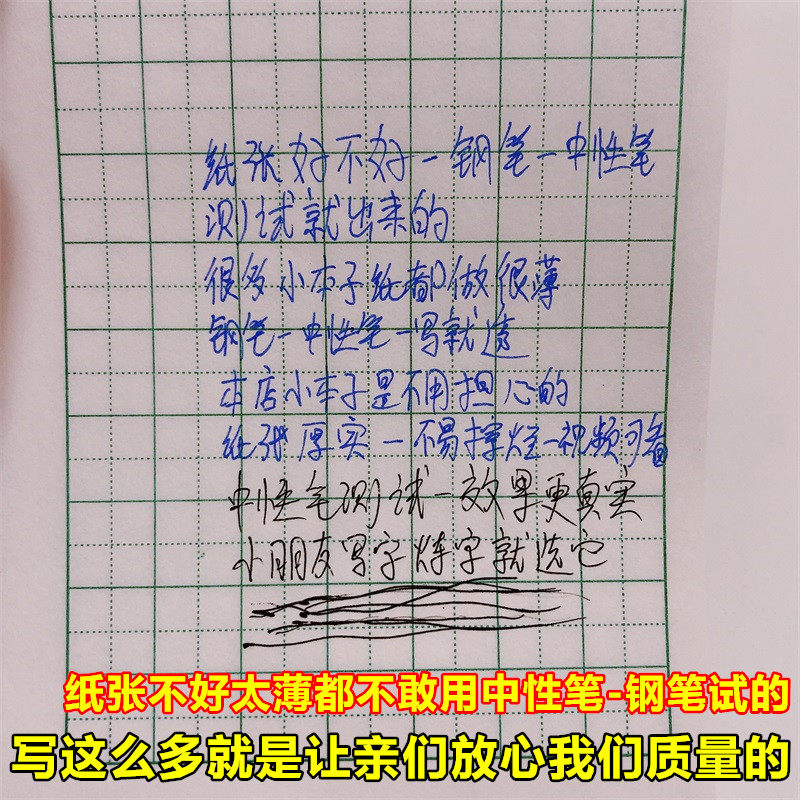 纸张好不好-钢笔-中性笔
测试就出来的
很多小本子纸都做很薄
钢笔-中性笔-写就透
本店小本子是不用担心的
纸张厚实-不易擦烂-视频可看
中性笔测试-效果更真实
小朋友写字练字就选它
纸张不好太薄都不敢用中性笔-钢笔试的
写这么多就是让亲们放心我们质量的